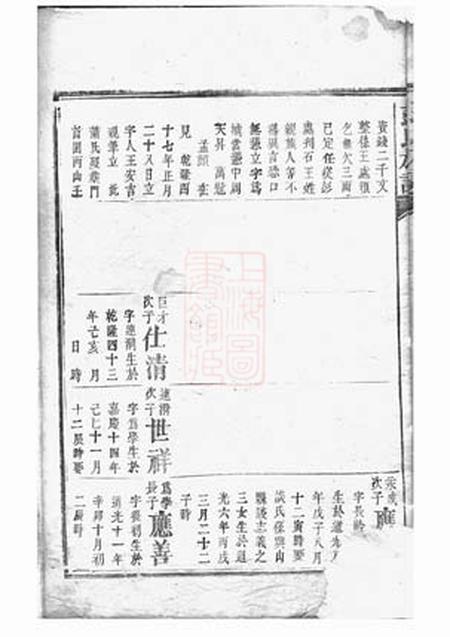 資錢二千文
整係王處領
乞無欠三面
已定任從彭
處刊石王姓
親族人等不
得異言恐口
無憑立字為
據當憑中周
天昇 萬冕
孟頫 在
見 乾隆四
十七年正月
二十八日立
字人王安吉
親筆立 此
蕭氏
首闗丙山壬
巨才
次子
仕清
字連清生於
乾隆四十三
年 亥 月
日 時
連清
次子
世祥
字為學生於
嘉慶十四年
己巳十一月
十二辰時娶
為學
長子
應善
字 初生於
道光十一年
辛卯十月初
二辰時
次子
應
字長齡
生於道光
年戊子八月
十二寅時娶
談氏係興山
縣談志義之
三女生於道
光六年丙戌
三月二十二
子時
上海圖
書館